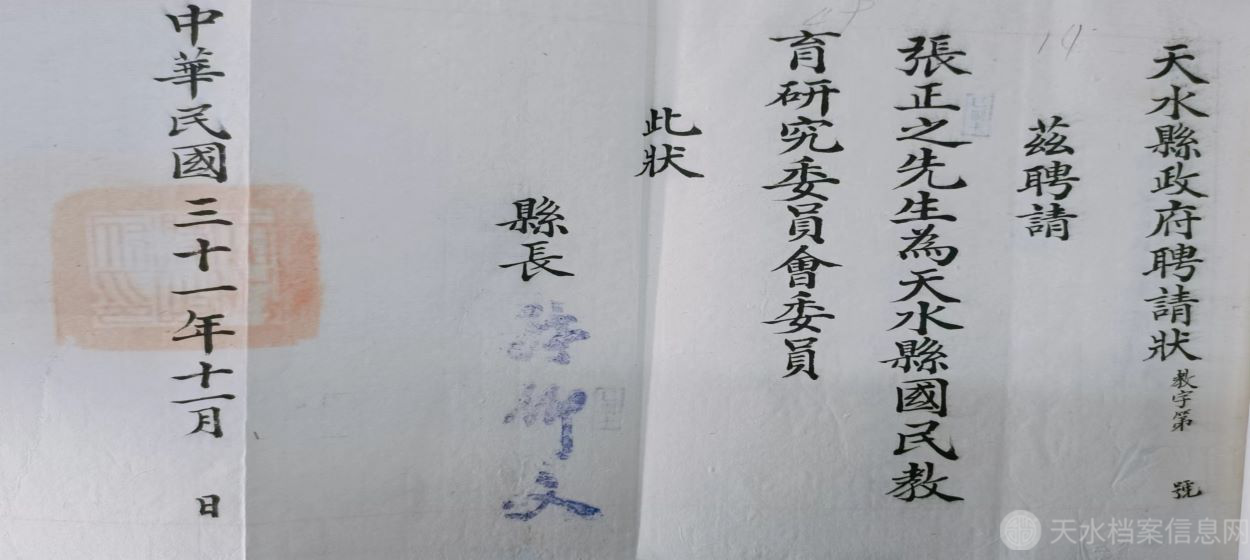 天水縣政府聘請狀 教字第 號
茲聘請
張正之先生為天水縣國民教
育研究委員會委員
此狀
縣長
中華民國三十一年十一月 日
天水档案信息网